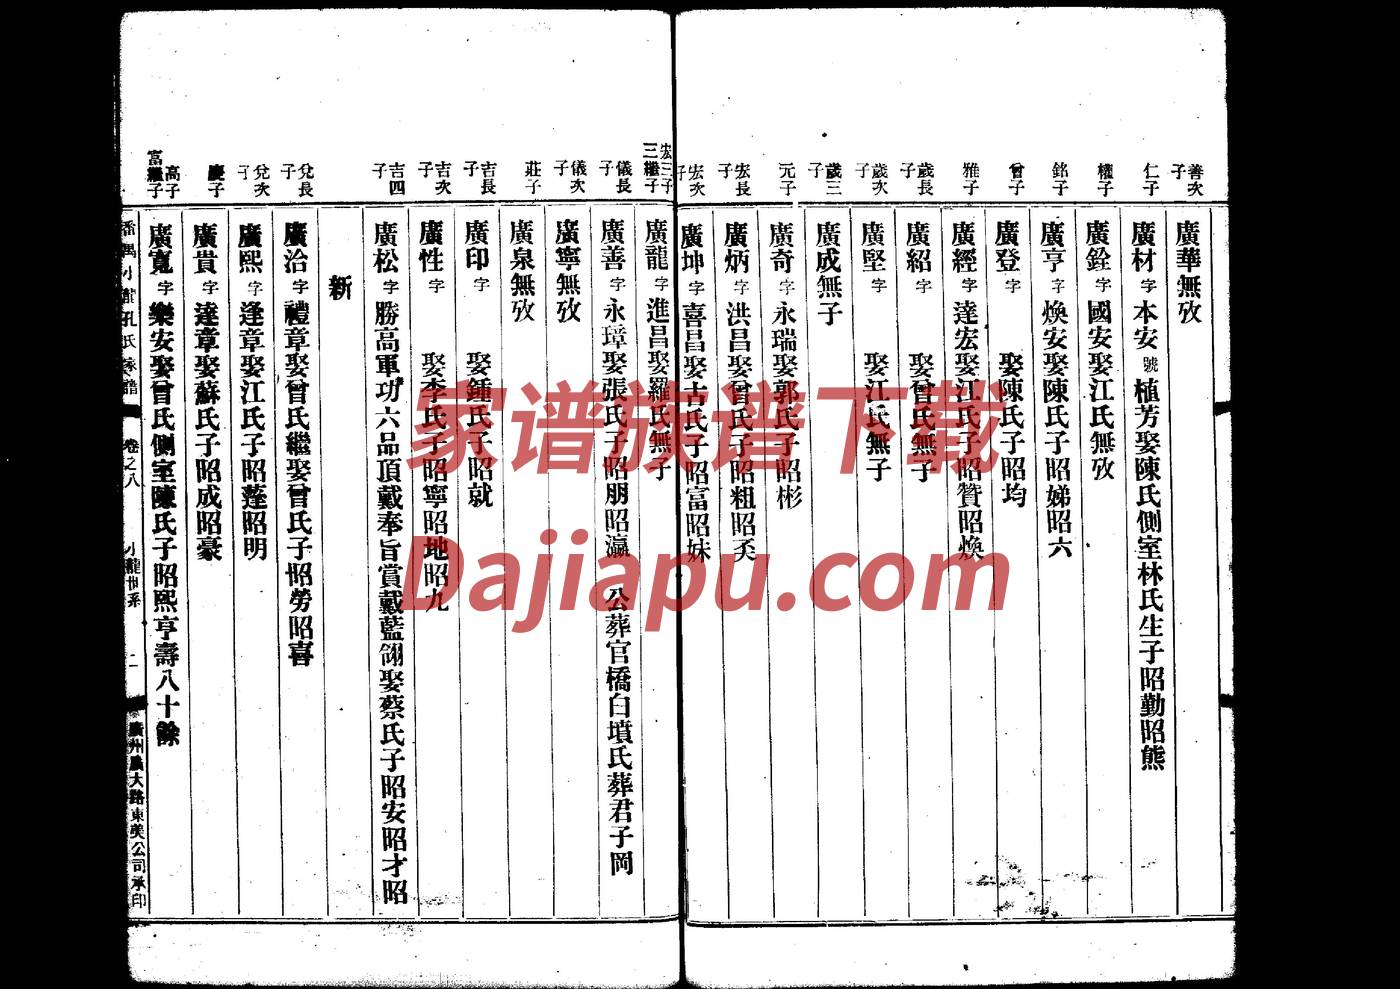 善次子
廣華無攷
仁子
廣材字本安號植芳娶陳氏側室林氏生子昭勤昭熊
權子
廣銓字國安娶江氏無攷
銘子
廣亨字煥安娶陳氏子昭娣昭六
曾子
廣登字 娶陳氏子昭均
雅子
廣經字達宏娶江氏子昭贊昭煥
歲長子
廣紹字 娶曾氏無子
歲次子
廣堅字 娶江氏無子
歲三子
廣成無子
元子
廣奇字永瑞娶郭氏子昭彬
宏長子
廣炳字洪昌娶曾氏子昭粗昭奀
宏次子
廣坤字喜昌娶古氏子昭富昭妹
宏三子三繼子
廣龍字進昌娶羅氏無子
儀長子
廣善字永璋娶張氏子昭朋昭瀛 公葬官橋白墳氏葬君子岡
儀次子
廣寧無攷
莊子
廣泉無攷
吉長子
廣印字 娶鍾氏子昭就
吉次子
廣性字 娶李氏子昭寧昭地昭九
吉四子
廣松字勝高軍功六品頂戴奉旨賞戴藍翎娶蔡氏子昭安昭才昭
新
兌長子
廣治字禮章娶曾氏繼娶曾氏子昭勞昭喜
兌次子
廣熙字逢章娶江氏子昭蓬昭明
慶子
廣貴字達章娶蘇氏子昭成昭豪
高子富繼子
廣寬字樂安娶曾氏側室陳氏子昭熙亨壽八十餘
番禺小龍孔氏家譜 卷之八 小龍世系 二 廣州惠大路東美公司承印
家谱族谱下载
Dajiapu.com